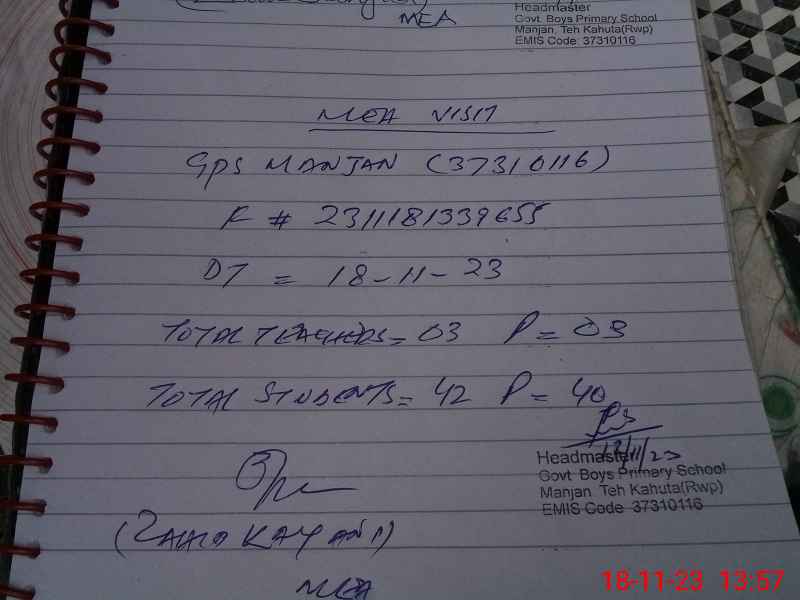 MEA
Headmaster
Govt. Boys Primary School
Manjan, Teh Kahuta(Rwp)
EMIS Code: 37310116
MEA VISIT
GPS MANJAN (37310116)
F # 2311181339655
DT = 18-11-23
TOTAL TEACHERS = 03 P = 03
TOTAL STUDENTS = 42 P = 40
18/11/23
Headmaster
Govt. Boys Primary School
Manjan, Teh Kahuta(Rwp)
EMIS Code: 37310116
(ZAHID KAYANI)
MEA
18-11-23 13:57